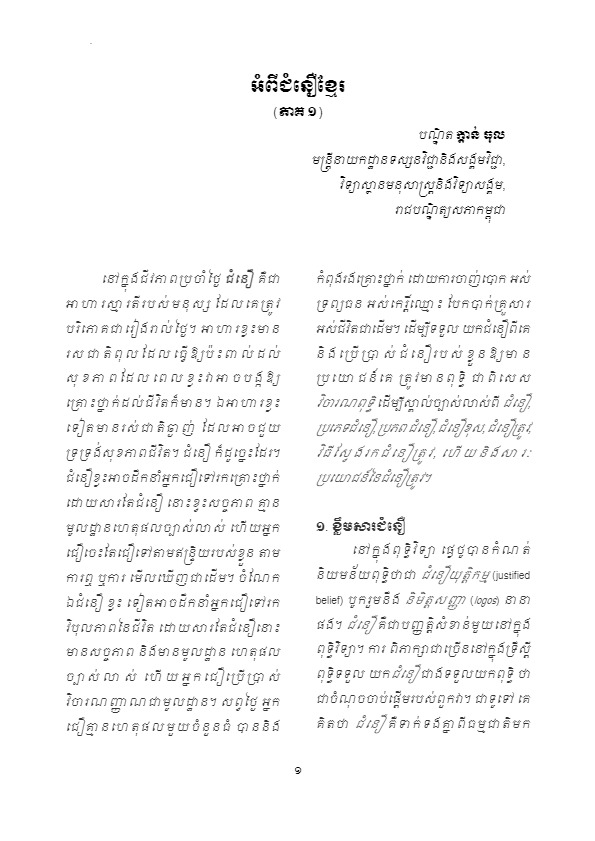 អំពីជំនឿខ្មែរ
(ភាគ ១)
បណ្ឌិត ភ្ញាន់ ធុល
មន្ត្រីនាយកដ្ឋានទស្សនវិជ្ជានិងសង្គមវិជ្ជា,
វិទ្យាស្ថានមនុសាស្ត្រនិងវិទ្យាសង្គម,
រាជបណ្ឌិត្យសភាកម្ពុជា
នៅក្នុងជីវភាពប្រចាំថ្ងៃ ជំនឿ គឺជា
អាហារស្មារតីរបស់មនុស្ស ដែលគេត្រូវ
បរិភោគជារៀងរាល់ថ្ងៃ។ អាហារខ្លះមាន
រសជាតិពុលដែលធ្វើឱ្យប៉ះពាល់ដល់
សុខភាពដែលពេលខ្លះវាអាចបង្កឱ្យ
គ្រោះថ្នាក់ដល់ជីវិតក៏មាន។ ឯអាហារខ្លះ
ទៀតមានរស់ជាតិឆ្ងាញ់ ដែលអាចជួយ
ទ្រទ្រង់សុខភាពជីវិត។ ជំនឿ ក៏ដូច្នេះដែរ។
ជំនឿខ្លះអាចដឹកនាំអ្នកជឿទៅរកគ្រោះថ្នាក់
ដោយសារតែជំនឿ នោះខ្វះសច្ចភាព គ្មាន
មូលដ្ឋានហេតុផលច្បាស់លាស់ ហើយអ្នក
ជឿចេះតែជឿទៅតាមឥន្ទ្រិយរបស់ខ្លួន តាម
ការឮ ឬការ មើលឃើញជាដើម។ ចំណែក
ឯជំនឿ ខ្លះ ទៀតអាចដឹកនាំអ្នកជឿទៅរក
វិបុលភាពនៃជីវិត ដោយសារតែជំនឿនោះ
មានសច្ចភាព និងមានមូលដ្ឋាន ហេតុផល
ច្បាស់លាស់ ហើយអ្នកជឿប្រើប្រាស់
វិចារណញ្ញាណជាមូលដ្ឋាន។ សព្វថ្ងៃ អ្នក
ជឿគ្មានហេតុផលមួយចំនួនធំ បាននិង
កំពុងរងគ្រោះថ្នាក់ ដោយការចាញ់បោក អស់
ទ្រព្យធន អស់កេរ្តិ៍ឈ្មោះ បែកបាក់គ្រួសារ
អស់ជីវិតជាដើម។ ដើម្បីទទួល យកជំនឿពីគេ
និងប្រើប្រាស់ជំនឿរបស់ខ្លួនឱ្យមាន
ប្រយោជន៍គេ ត្រូវមានពុទ្ធិ ជាពិសេស
វិចារណពុទ្ធិ ដើម្បីស្គាល់ច្បាស់លាស់ពី ជំនឿ,
ប្រភេទជំនឿ, ប្រភពជំនឿ, ជំនឿខុស, ជំនឿត្រូវ,
វិធីស្វែងរកជំនឿត្រូវ, ហើយនិងសារៈ
ប្រយោជន៍នៃជំនឿត្រូវ។
១. ខ្លឹមសារជំនឿ
នៅក្នុងពុទ្ធិវិទ្យា ផ្លេថូបានកំណត់
និយមន័យពុទ្ធិថាជា ជំនឿយុត្តិកម្ម (justified
belief) បូករួមនឹង និមិត្តសញ្ញា (logos) នានា
ផង។ ជំនឿ គឺជាបញ្ញត្តិសំខាន់មួយនៅក្នុង
ពុទ្ធិវិទ្យា។ ការ ពិភាក្សាជាច្រើននៅក្នុងទ្រឹស្តី
ពុទ្ធិទទួល យកជំនឿ ជាងទទួលយកពុទ្ធិ ថា
ជាចំណុចចាប់ផ្តើមរបស់ពួកវា។ ជាទូទៅ គេ
គិតថា ជំនឿ គឺទាក់ទងគ្នាពីធម្មជាតិមក
១